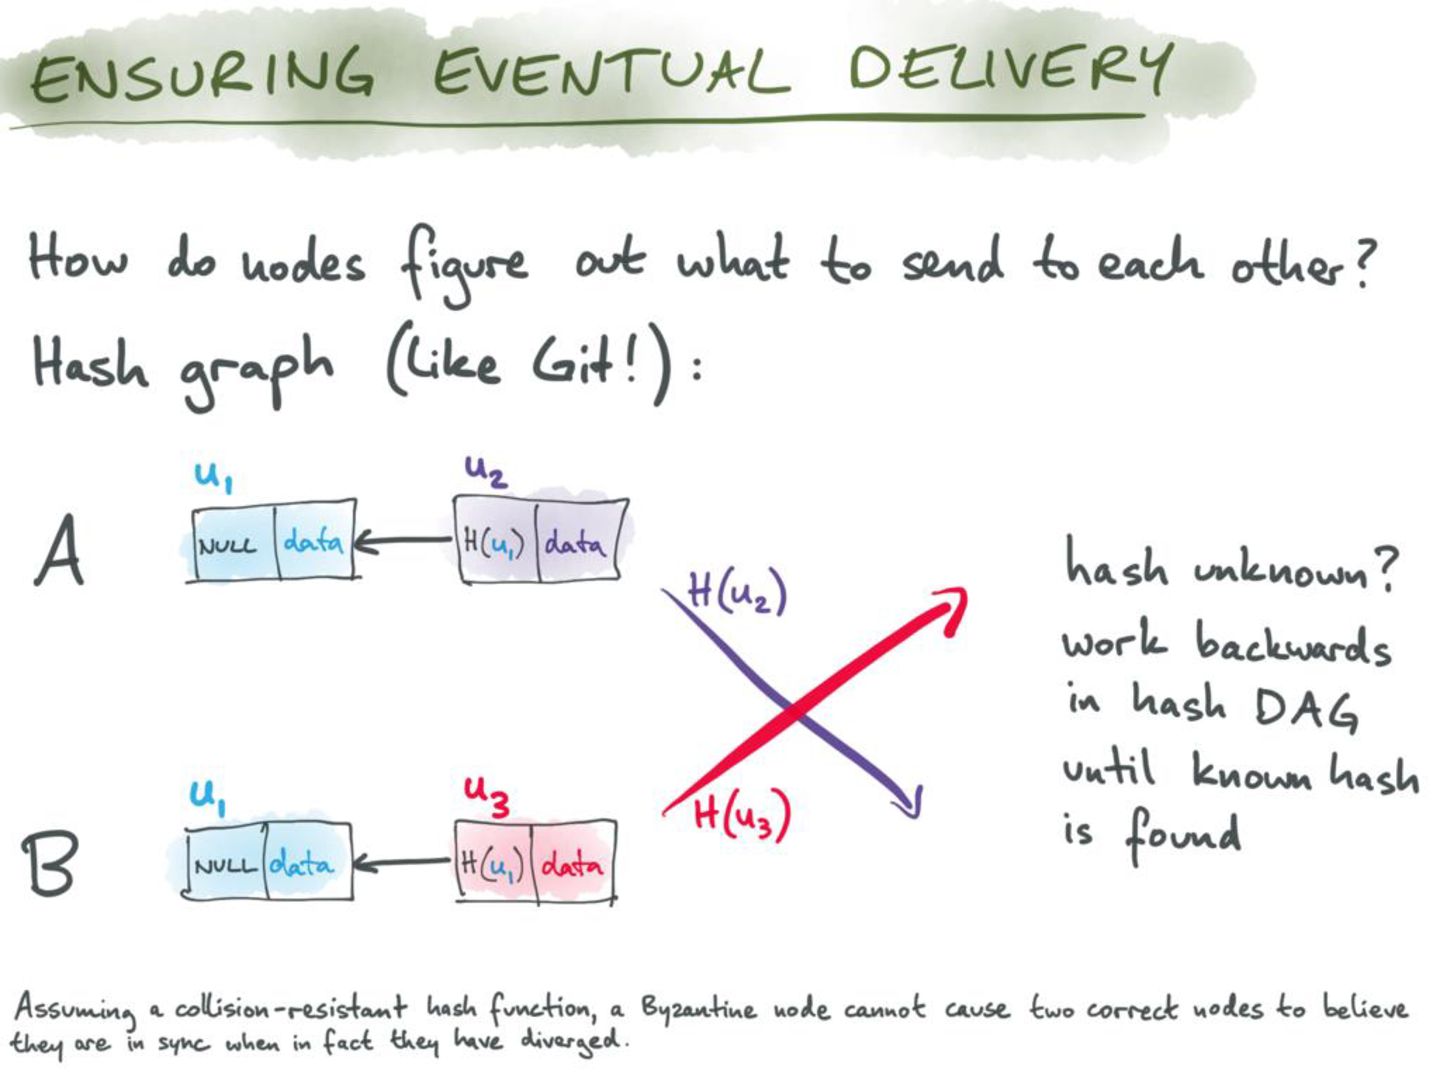 ENSURING EVENTUAL DELIVERY
How do nodes figure out what to send to each other?
Hash graph (like Git!):
u₁
u₂
A
NULL data
H(u₁) data
H(u₂)
hash unknown?
work backwards
in hash DAG
until known hash
is found
u₁
u₃
B
NULL data
H(u₁) data
H(u₃)
Assuming a collision-resistant hash function, a Byzantine node cannot cause two correct nodes to believe
they are in sync when in fact they have diverged.